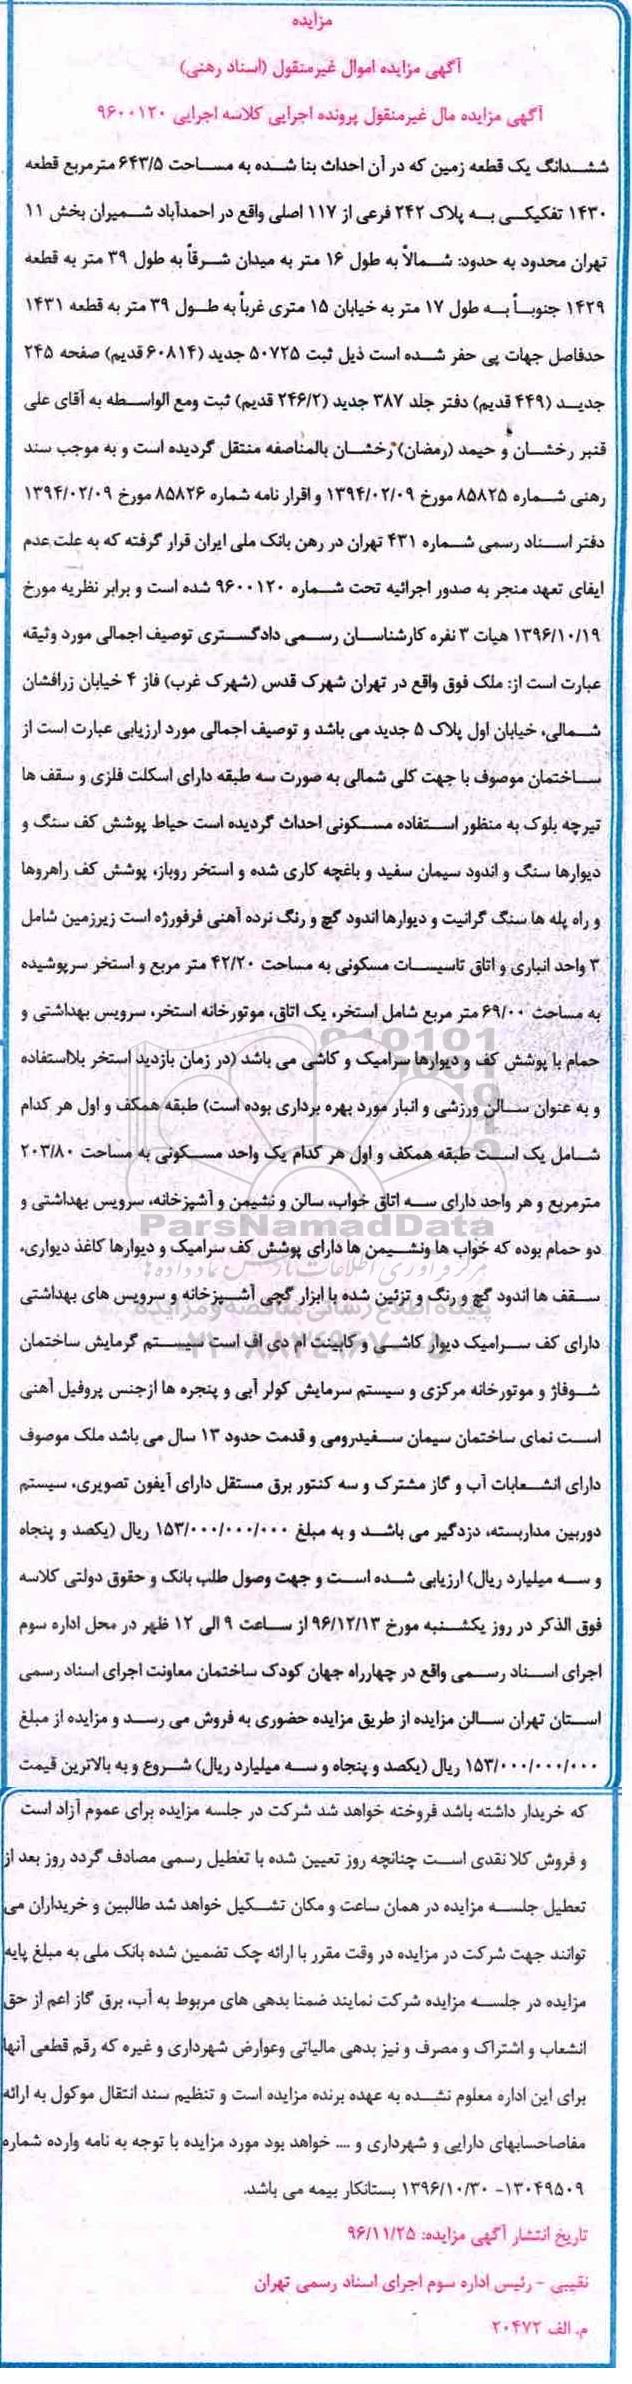 مزایده
آگهی مزایده اموال غیرمنقول (اسناد رهنی)
آگهی مزایده مال غیرمنقول پرونده اجرایی کلاسه اجرایی ۹۶۰۰۱۲۰
ششدانگ یک قطعه زمین که در آن احداث بنا شده به مساحت ۶۴۳/۵ مترمربع قطعه
۱۴۳۰ تفکیکی به پلاک ۲۴۲ فرعی از ۱۱۷ اصلی واقع در احمدآباد شمیران بخش ۱۱
تهران محدود به حدود: شمالاً به طول ۱۶ متر به میدان شرقاً به طول ۳۹ متر به قطعه
۱۴۲۹ جنوباً به طول ۱۷ متر به خیابان ۱۵ متری غرباً به طول ۳۹ متر به قطعه ۱۴۳۱
حدفاصل جهات پی حفر شده است ذیل ثبت ۵۰۷۲۵ جدید (۶۰۸۱۴ قدیم) صفحه ۲۴۵
جدید (۴۴۹ قدیم) دفتر جلد ۳۸۷ جدید (۲۴۶/۲ قدیم) ثبت ومع الواسطه به آقای علی
قنبر رخشان و حیمد (رمضان) رخشان بالمناصفه منتقل گردیده است و به موجب سند
رهنی شماره ۸۵۸۲۵ مورخ ۱۳۹۴/۰۲/۰۹ و اقرار نامه شماره ۸۵۸۲۶ مورخ ۱۳۹۴/۰۲/۰۹
دفتر اسناد رسمی شماره ۴۳۱ تهران در رهن بانک ملی ایران قرار گرفته که به علت عدم
ایفای تعهد منجر به صدور اجرائیه تحت شماره ۹۶۰۰۱۲۰ شده است و برابر نظریه مورخ
۱۳۹۶/۱۰/۱۹ هیات ۳ نفره کارشناسان رسمی دادگستری توصیف اجمالی مورد وثیقه
عبارت است از: ملک فوق واقع در تهران شهرک قدس (شهرک غرب) فاز ۴ خیابان زرافشان
شمالی، خیابان اول پلاک ۵ جدید می باشد و توصیف اجمالی مورد ارزیابی عبارت است از
ساختمان موصوف با جهت کلی شمالی به صورت سه طبقه دارای اسکلت فلزی و سقف ها
تیرچه بلوک به منظور استفاده مسکونی احداث گردیده است حیاط پوشش کف سنگ و
دیوارها سنگ و اندود سیمان سفید و باغچه کاری شده و استخر روباز، پوشش کف راهروها
و راه پله ها سنگ گرانیت و دیوارها اندود گچ و رنگ نرده آهنی فرفورژه است زیرزمین شامل
۳ واحد انباری و اتاق تاسیسات مسکونی به مساحت ۴۲/۲۰ متر مربع و استخر سرپوشیده
به مساحت ۶۹/۰۰ متر مربع شامل استخر، یک اتاق، موتورخانه استخر، سرویس بهداشتی و
حمام با پوشش کف و دیوارها سرامیک و کاشی می باشد (در زمان بازدید استخر بلااستفاده
و به عنوان سالن ورزشی و انبار مورد بهره برداری بوده است) طبقه همکف و اول هر کدام
شامل یک است طبقه همکف و اول هر کدام یک واحد مسکونی به مساحت ۲۰۳/۸۰
مترمربع و هر واحد دارای سه اتاق خواب، سالن و نشیمن و آشپزخانه، سرویس بهداشتی و
ParsNamadData
دو حمام بوده که خواب ها ونشیمن ها دارای پوشش کف سرامیک و دیوارها کاغذ دیواری،
سقف ها اندود گچ و رنگ و تزئین شده با ابزار گچی آشپزخانه و سرویس های بهداشتی
دارای کف سرامیک دیوار کاشی و کابینت ام دی اف است سیستم گرمایش ساختمان
شوفاژ و موتورخانه مرکزی و سیستم سرمایش کولر آبی و پنجره ها ازجنس پروفیل آهنی
است نمای ساختمان سیمان سفیدرومی و قدمت حدود ۱۳ سال می باشد ملک موصوف
دارای انشعابات آب و گاز مشترک و سه کنتور برق مستقل دارای آیفون تصویری، سیستم
دوربین مداربسته، دزدگیر می باشد و به مبلغ ۱۵۳/۰۰۰/۰۰۰/۰۰۰ ریال (یکصد و پنجاه
و سه میلیارد ریال) ارزیابی شده است و جهت وصول طلب بانک و حقوق دولتی کلاسه
فوق الذکر در روز یکشنبه مورخ ۹۶/۱۲/۱۳ از ساعت ۹ الی ۱۲ ظهر در محل اداره سوم
اجرای اسناد رسمی واقع در چهارراه جهان کودک ساختمان معاونت اجرای اسناد رسمی
استان تهران سالن مزایده از طریق مزایده حضوری به فروش می رسد و مزایده از مبلغ
۱۵۳/۰۰۰/۰۰۰/۰۰۰ ریال (یکصد و پنجاه و سه میلیارد ریال) شروع و به بالاترین قیمت
که خریدار داشته باشد فروخته خواهد شد شرکت در جلسه مزایده برای عموم آزاد است
و فروش کلا نقدی است چنانچه روز تعیین شده با تعطیل رسمی مصادف گردد روز بعد از
تعطیل جلسه مزایده در همان ساعت و مکان تشکیل خواهد شد طالبین و خریداران می
توانند جهت شرکت در مزایده در وقت مقرر با ارائه چک تضمین شده بانک ملی به مبلغ پایه
مزایده در جلسه مزایده شرکت نمایند ضمنا بدهی های مربوط به آب، برق گاز اعم از حق
انشعاب و اشتراک و مصرف و نیز بدهی مالیاتی وعوارض شهرداری و غیره که رقم قطعی آنها
برای این اداره معلوم نشده به عهده برنده مزایده است و تنظیم سند انتقال موکول به ارائه
مفاصاحسابهای دارایی و شهرداری و .... خواهد بود مورد مزایده با توجه به نامه وارده شماره
۱۳۰۴۹۵۰۹- ۱۳۹۶/۱۰/۳۰ بستانکار بیمه می باشد.
تاریخ انتشار آگهی مزایده: ۹۶/۱۱/۲۵
نقیبی - رئیس اداره سوم اجرای اسناد رسمی تهران
م. الف ۲۰۴۷۲